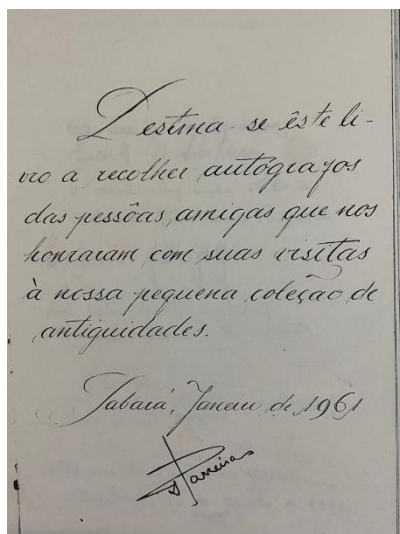 Destina-se êste li-
vro a recolher autógrafos
das pessôas amigas que nos
honraram com suas visitas
à nossa pequena coleção de
antiguidades.
Sabará, Janeiro de 1961